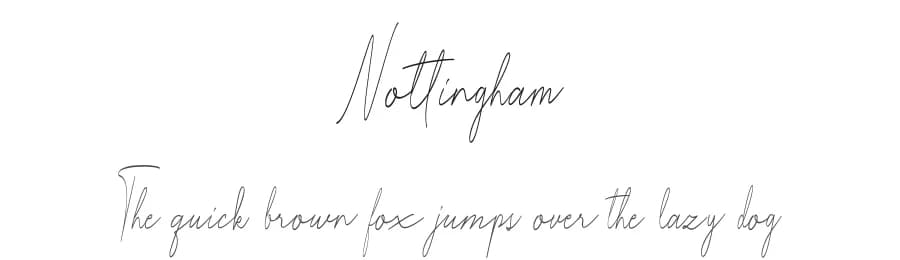 Nottingham
The quick brown fox jumps over the lazy dog